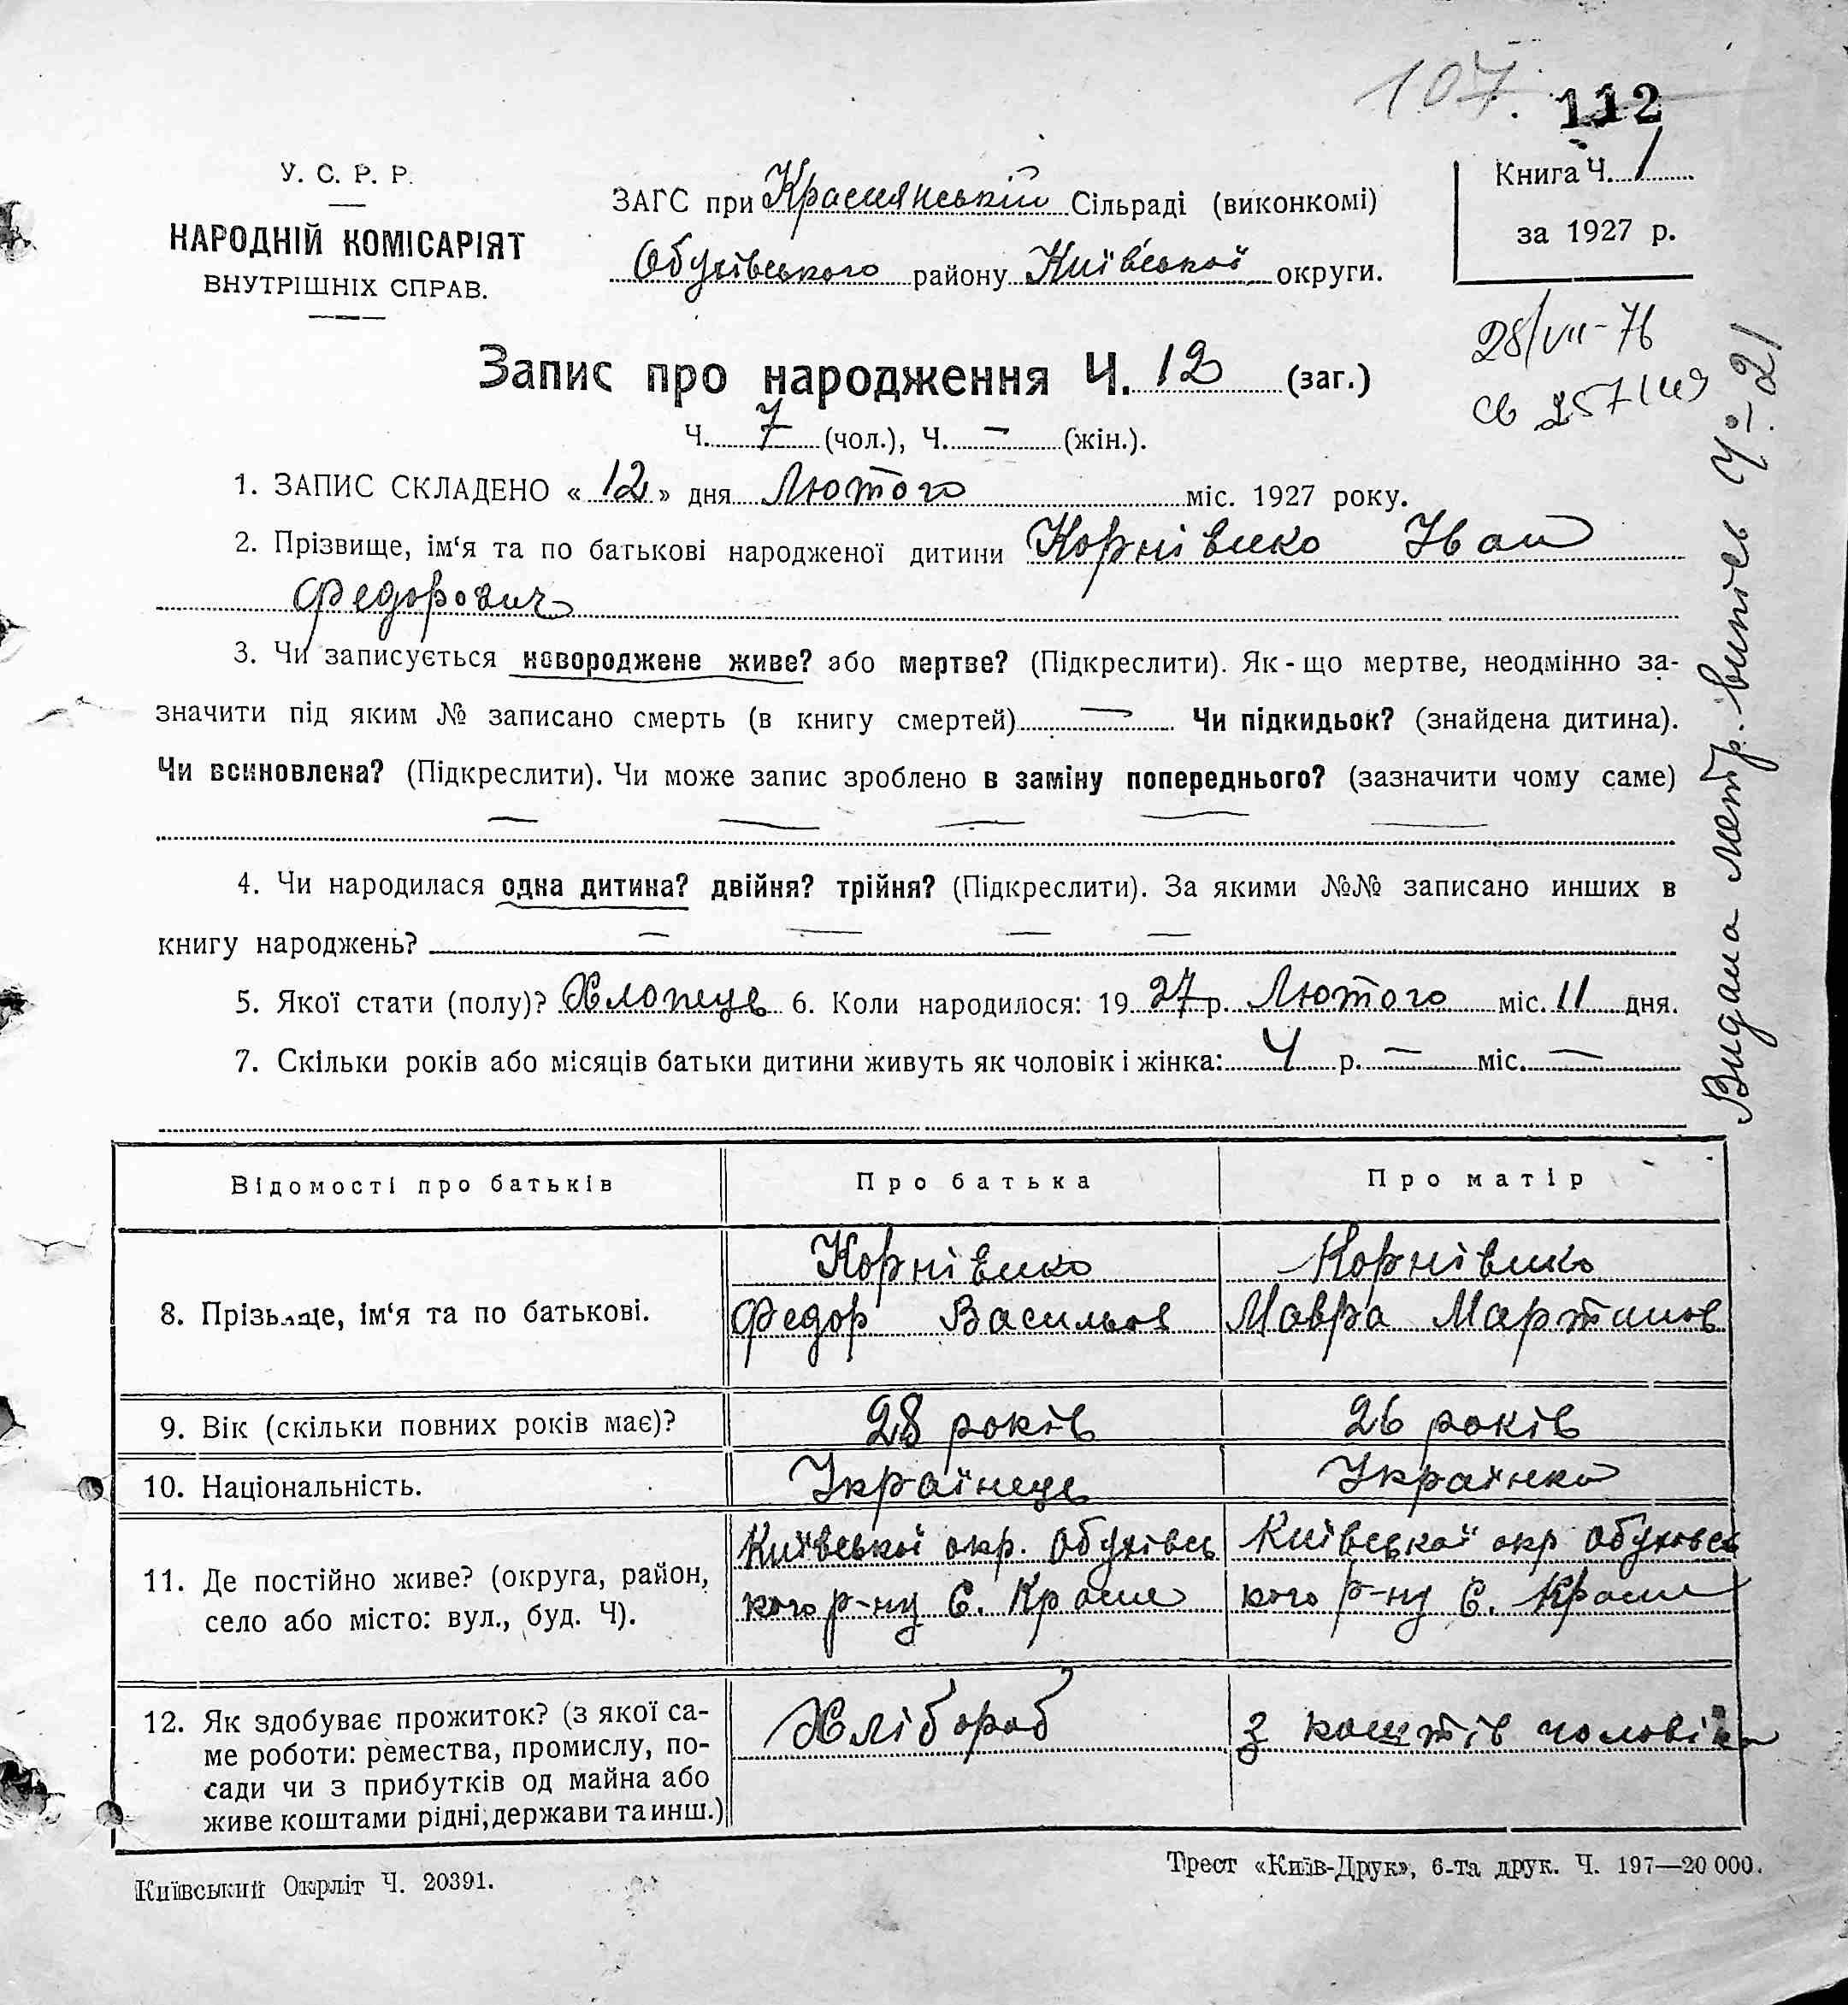 107. 112
У. С. Р. Р.
НАРОДНІЙ КОМІСАРІЯТ
ВНУТРІШНІХ СПРАВ.
ЗАГС при Краснянській Сільраді (виконкомі)
Обухівського району Київської округи.
Книга Ч. 1
за 1927 р.
28/VII-76
св 257149
Запис про народження Ч. 12 (заг.)
Ч. 7 (чол.), Ч. — (жін.).
1. ЗАПИС СКЛАДЕНО « 12 » дня Лютого міс. 1927 року.
2. Прізвище, ім‘я та по батькові народженої дитини Корнієнко Іван
Федорович
3. Чи записується новороджене живе? або мертве? (Підкреслити). Як-що мертве, неодмінно за-
значити під яким № записано смерть (в книгу смертей) — Чи підкидьок? (знайдена дитина).
Чи всиновлена? (Підкреслити). Чи може запис зроблено в заміну попереднього? (зазначити чому саме)
— — — — —
4. Чи народилася одна дитина? двійня? трійня? (Підкреслити). За якими №№ записано инших в
книгу народжень? — — — —
5. Якої стати (полу)? Хлопець 6. Коли народилося: 1927 р. Лютого міс. 11 дня.
7. Скільки років або місяців батьки дитини живуть як чоловік і жінка: 4 р. — міс. —
Видана метр. випись Ч. 21
Відомості про батьків Про батька Про матір
8. Прізвище, ім‘я та по батькові. Корнієнко Корнієнко
Федор Васильов Мавра Мартинов
9. Вік (скільки повних років має)? 28 років 26 років
10. Національність. Українець Українка
11. Де постійно живе? (округа, район, Київської окр. Обухівсь Київської окр Обуховсь
село або місто: вул., буд. Ч). кого р-ну С. Красне кого р-ну С. Красне
12. Як здобуває прожиток? (з якої са- Хлібороб З коштів чоловіка
ме роботи: ремества, промислу, по-
сади чи з прибутків од майна або
живе коштами рідні, держави та инш.)
Київський Окрліт Ч. 20391.
Трест «Київ-Друк», 6-та друк. Ч. 197—20 000.